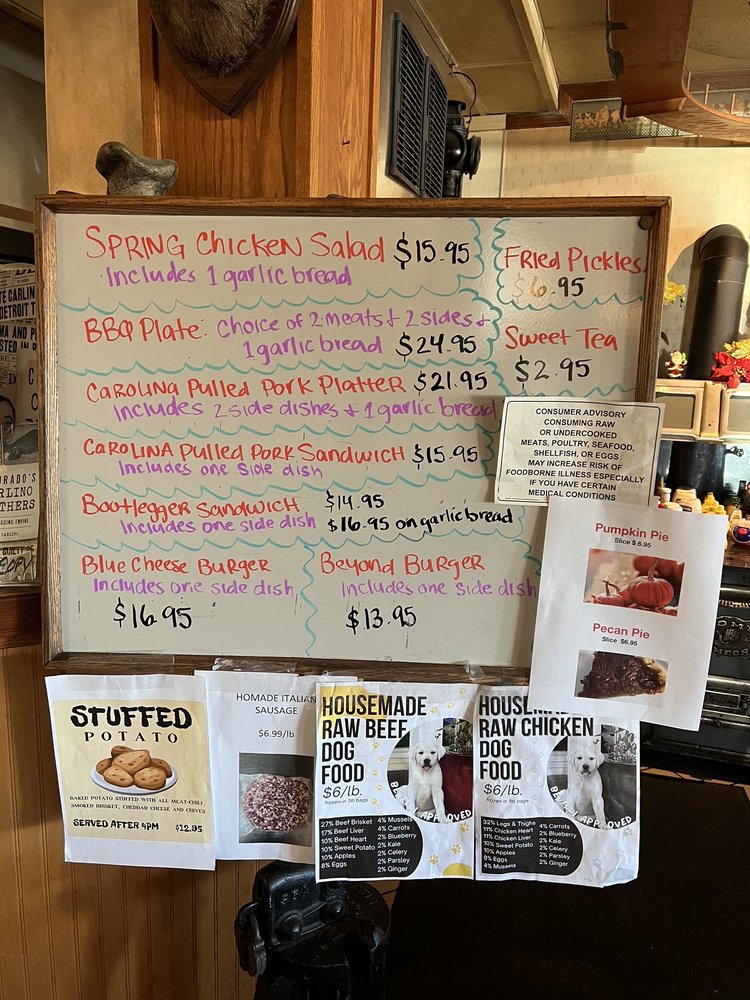 SPRING Chicken Salad $15.95
Includes 1 garlic bread
BBQ Plate: Choice of 2 meats + 2 sides +
1 garlic bread $24.95
CAROLINA Pulled Pork PLATTER $21.95
Includes 2 side dishes + 1 garlic bread
CAROLINA Pulled Pork Sandwich $15.95
Includes one side dish
Bootlegger Sandwich $14.95
Includes one side dish $16.95 on garlic bread
Blue Cheese Burger
Includes one side dish
$16.95
Beyond Burger
Includes one side dish
$13.95
Fried Pickles
$6.95
Sweet Tea
$2.95
CONSUMER ADVISORY
CONSUMING RAW
OR UNDERCOOKED
MEATS, POULTRY, SEAFOOD,
SHELLFISH, OR EGGS
MAY INCREASE RISK OF
FOODBORNE ILLNESS ESPECIALLY
IF YOU HAVE CERTAIN
MEDICAL CONDITIONS
Pumpkin Pie
Slice $ 6.95
Pecan Pie
Slice $6.95
STUFFED
POTATO
BAKED POTATO STUFFED WITH ALL MEAT-CHILI
SMOKED BRISKET, CHEDDAR CHEESE AND CHIVES
SERVED AFTER 4PM $12.95
HOMADE ITALIAN
SAUSAGE
$6.99/lb
HOUSEMADE
RAW BEEF
DOG
FOOD
$6/lb.
frozen in 1lb bags
APPROVED
27% Beef Brisket
17% Beef Liver
10% Beef Heart
10% Sweet Potato
10% Apples
8% Eggs
4% Mussels
4% Carrots
2% Blueberry
2% Kale
2% Celery
2% Parsley
2% Ginger
HOUSEMADE
RAW CHICKEN
DOG
FOOD
$6/lb.
frozen in 1lb bags
APPROVED
32% Legs & Thighs
11% Chicken Heart
11% Chicken Liver
10% Sweet Potato
10% Apples
8% Eggs
4% Mussels
4% Carrots
2% Blueberry
2% Kale
2% Celery
2% Parsley
2% Ginger